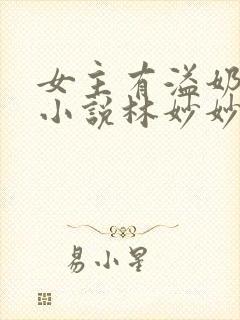 女主有溢奶
小说林妙妙
易小星